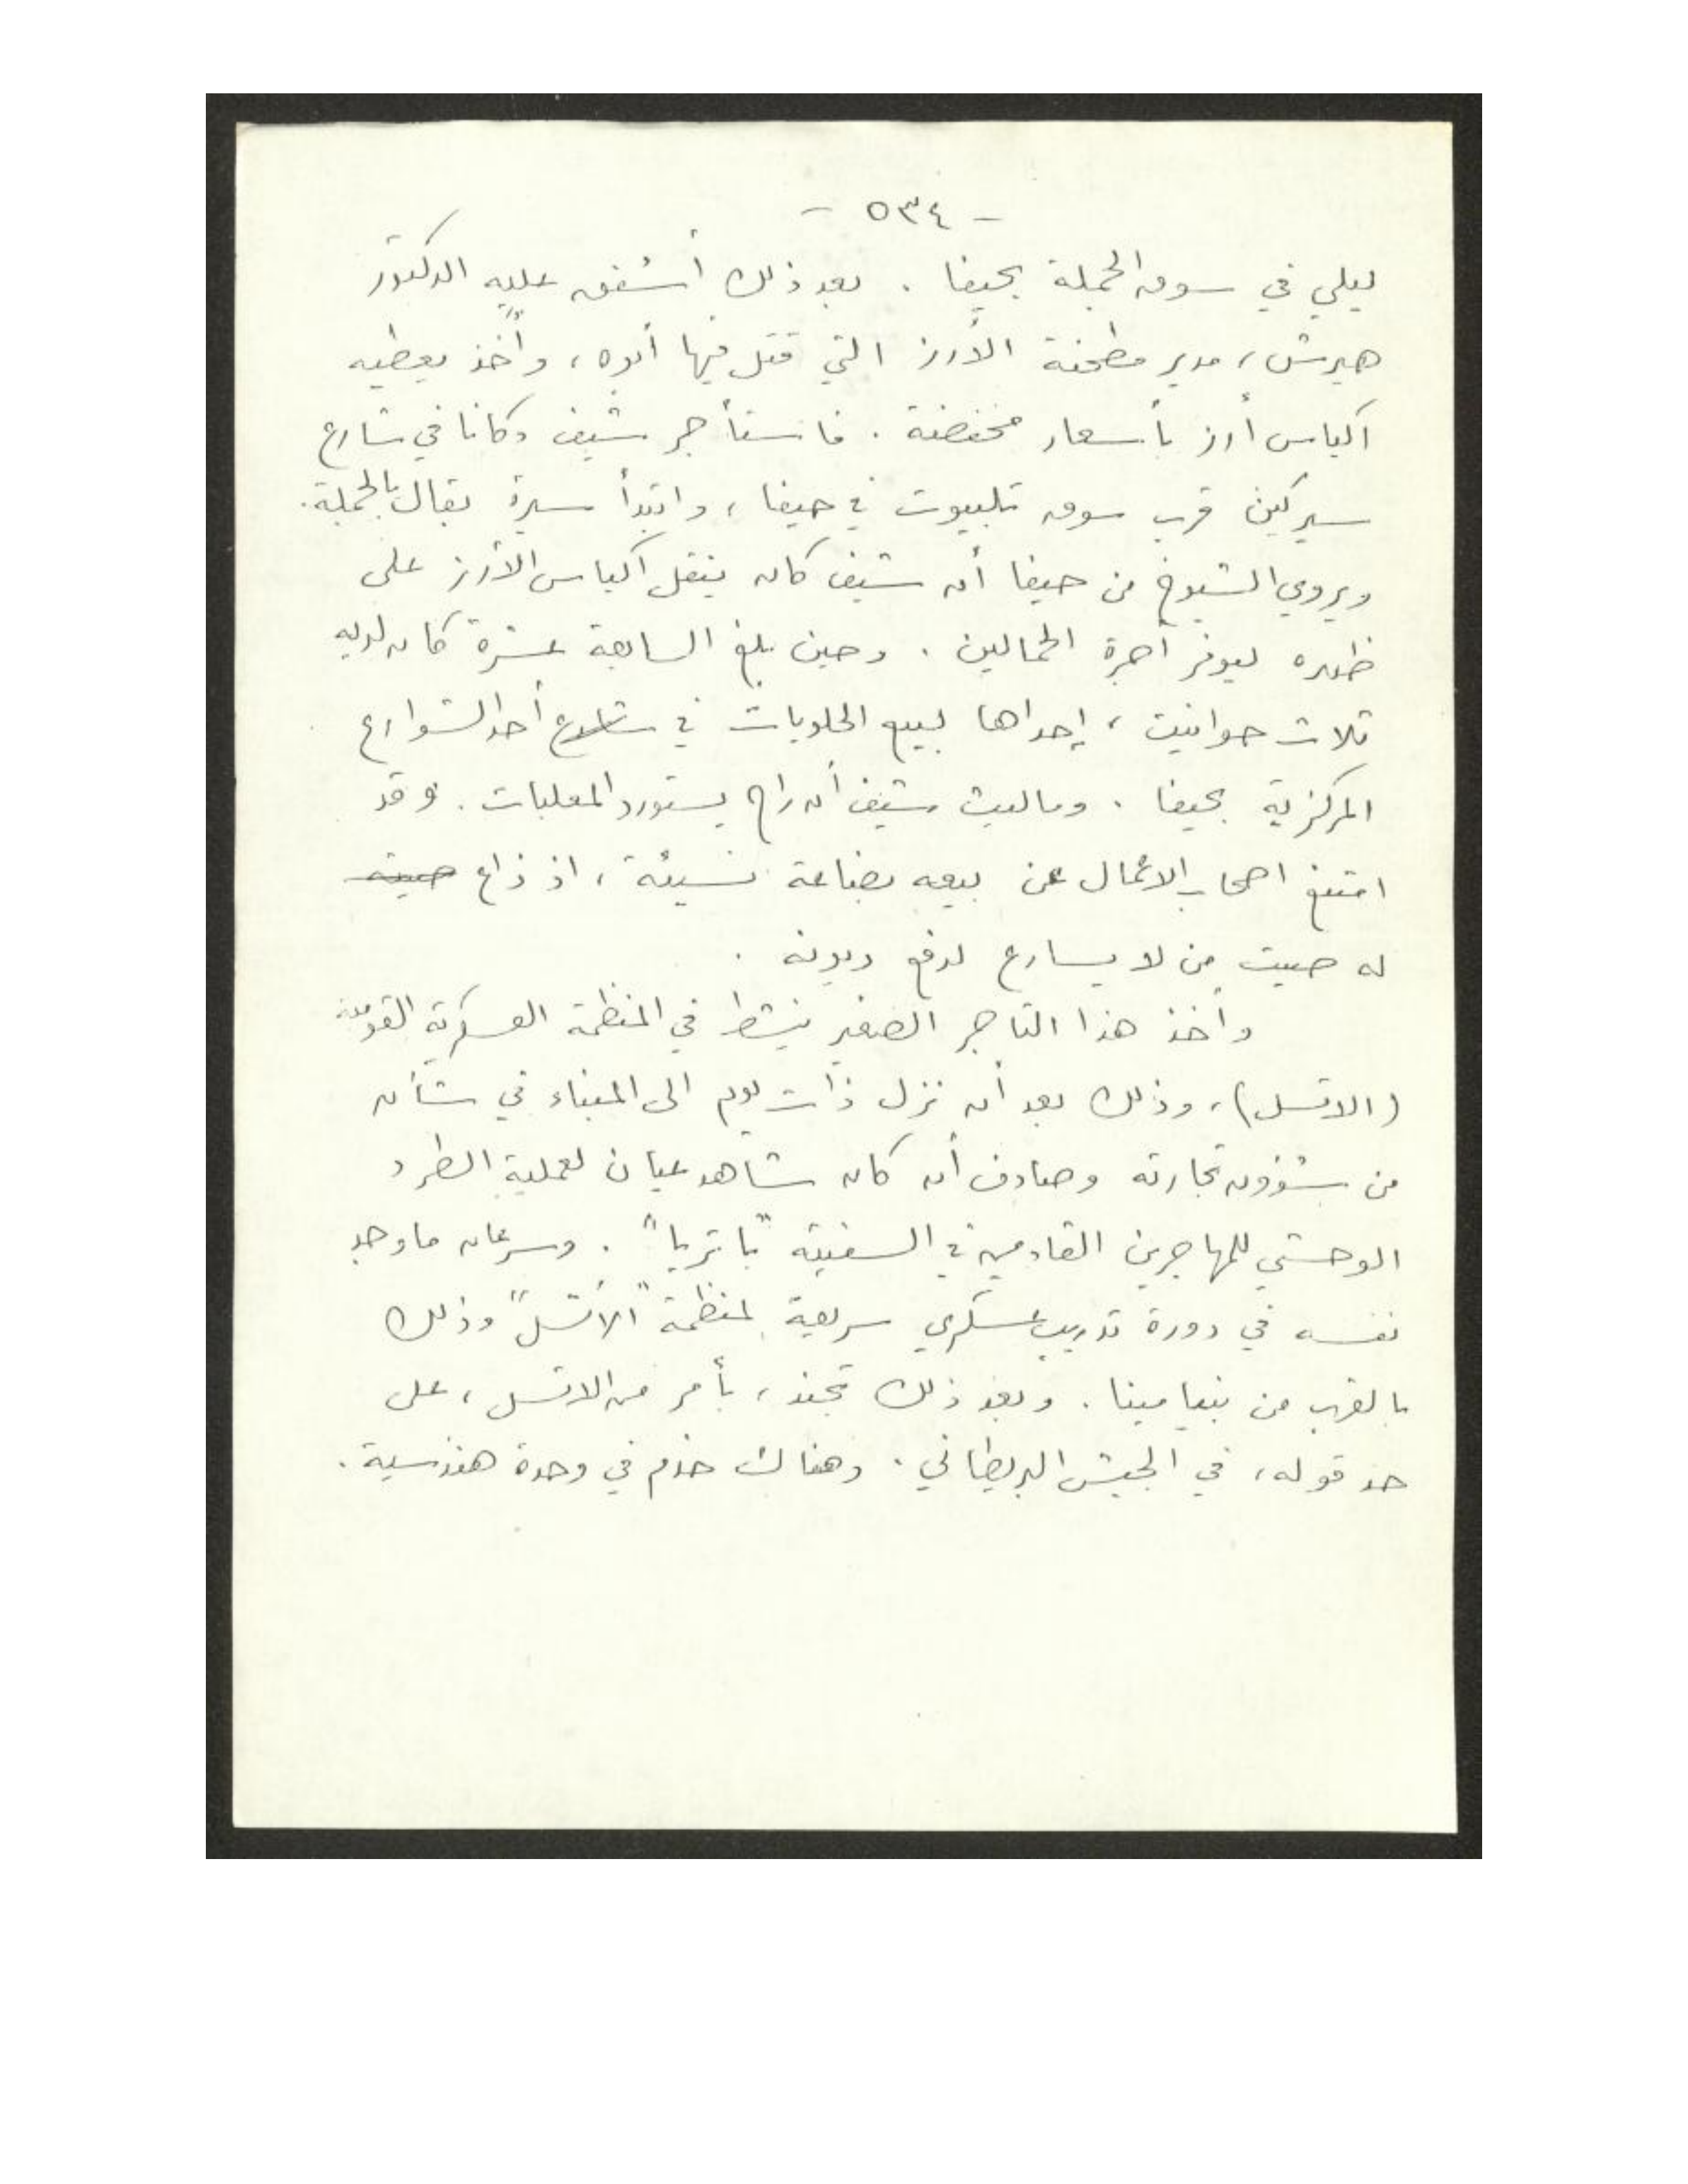 - ٥٣٤ -
ليلي في سوق الجملة بحيفا . بعد ذلك أشفق عليه الدكتور
هيرش، مدير مطحنة الأرز التي قتل فيها أبوه، وأخذ يعطيه
اكياس أرز بأسعار مخفضة . فاستأجر شيف دكانا في شارع
سيركين قرب سوق تلبيوت في حيفا، وابتدأ سيرة بقال بالجملة.
ويروي الشيوخ من حيفا أن شيف كان ينقل اكياس الأرز على
ظهره ليوفر أجرة الحمالين . وحين بلغ السابعة عشرة كان لديه
ثلاث حوانيت، إحداها لبيع الحلويات في شارع أحد الشوارع
المركزية بحيفا . وما لبث شيف أن راح يستورد المعلبات . وقد
امتنع اصحاب الاعمال عن بيعه بضاعة نسيئة، اذ ذاع صيته
له صيت من لا يسارع لدفع ديونه .
وأخذ هذا التاجر الصغير ينشط في المنظمة العسكرية القومية
(الاتسل)، وذلك بعد أن نزل ذات يوم الى الميناء في شأن
من شؤون تجارته وصادف أن كان شاهد عيان لعملية الطرد
الوحشي للمهاجرين القادمين في السفينة "باتريا" . وسرعان ما وجد
نفسه في دورة تدريب عسكري سريعة لمنظمة "الأتسل" وذلك
بالقرب من بنيامينا . وبعد ذلك تجند، بأمر من الاتسل، على
حد قوله، في الجيش البريطاني . وهناك خدم في وحدة هندسية .